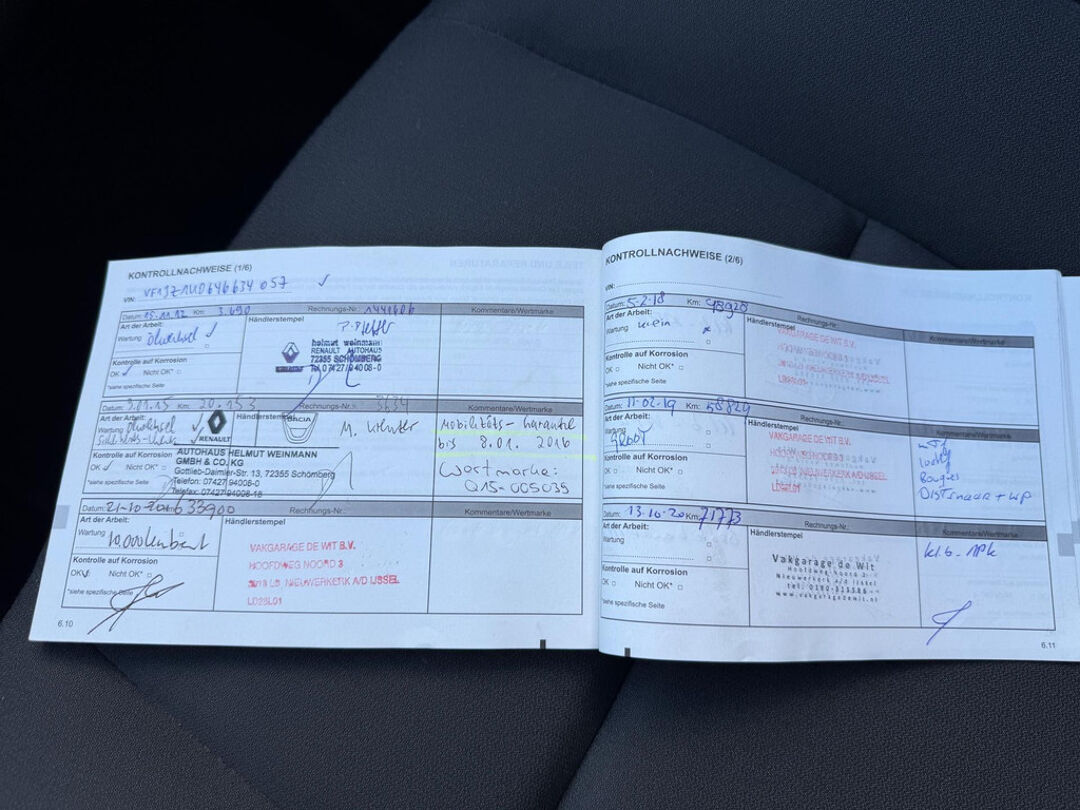 KONTROLLNACHWEISE (1/6)
VIN:
Datum: 15.11.12 Km: 3.690 Rechnungs-Nr.: 1441606 Kommentare/Wertmarke
Art der Arbeit: Händlerstempel
Wartung Ölwechsel
helmut weinmann
RENAULT AUTOHAUS
72355 SCHÖMBERG
Tel. 07427/94008-0
Kontrolle auf Korrosion
OK Nicht OK*
*siehe spezifische Seite
Datum: 9.01.15 Km: 20.153 Rechnungs-Nr.: 3634 Kommentare/Wertmarke
Art der Arbeit: Händlerstempel
Wartung Ölwechsel
RENAULT
DACIA
Mobilitäts-Garantie
bis 8.01. 2016
Wertmarke:
Q15-005039
AUTOHAUS HELMUT WEINMANN
GMBH & CO. KG
Gottlieb-Daimler-Str. 13, 72355 Schömberg
Telefon: 07427/94008-0
Telefax: 07427/94008-18
Kontrolle auf Korrosion
OK Nicht OK*
*siehe spezifische Seite
Datum: 21-10-2016 33900 Rechnungs-Nr.: Kommentare/Wertmarke
Art der Arbeit: Händlerstempel
Wartung
VAKGARAGE DE WIT B.V.
HOOFDWEG NOORD 3
LB NIEUWERKERK A/D IJSSEL
Kontrolle auf Korrosion
OK Nicht OK*
*siehe spezifische Seite
6.10
KONTROLLNACHWEISE (2/6)
VIN:
Datum: 5-2-18 Km: 48928 Rechnungs-Nr.: Kommentare/Wertmarke
Art der Arbeit: Händlerstempel
Wartung klein
VAKGARAGE DE WIT B.V.
Kontrolle auf Korrosion
OK Nicht OK*
*siehe spezifische Seite
Datum: 11-02-19 Km: 58829 Rechnungs-Nr.: Kommentare/Wertmarke
Art der Arbeit: Händlerstempel
Wartung groot
VAKGARAGE DE WIT B.V.
HOOFDWEG NOORD 3
NIEUWERKERK A/D IJSSEL
Bougies
Distrinaar + WP
Kontrolle auf Korrosion
OK Nicht OK*
*siehe spezifische Seite
Datum: 13-10-20 Km: 71773 Rechnungs-Nr.: Kommentare/Wertmarke
Art der Arbeit: Händlerstempel
Wartung
Vakgarage de Wit
Hoofdweg Noord 3
Nieuwerkerk a/d IJssel
tel. 0180-313386
www.vakgaragedewit.nl
Kontrolle auf Korrosion
OK Nicht OK*
*siehe spezifische Seite
6.11